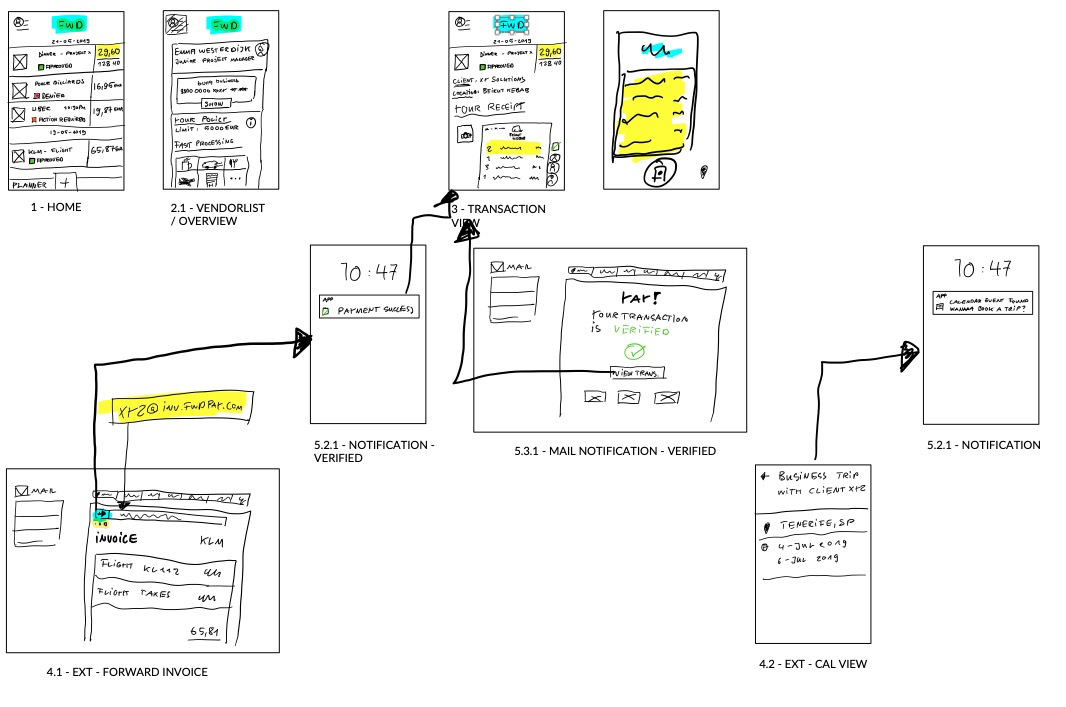 FWD
21-05-2019
DINNER - PROJECT X
29,60
APPROVED
128 40
POULE BILLIARDS
16,95
DENIED
UBEC 10:30PM
19,87
ACTION REQUIRED
19-05-2019
KLM - FLIGHT
65,87
APPROVED
PLANNER +
1 - HOME
FWD
EMMA WESTERDIJK
JUNIOR PROJECT MANAGER
SHOW
YOUR POLICY
LIMIT: 5000 EUR
FAST PROCESSING
...
2.1 - VENDORLIST
/ OVERVIEW
FWD
21-05-2019
DINNER - PROJECT X
29,60
APPROVED
128 40
CLIENT: XY SOLUTIONS
LOCATION: BEIRUT KEBAB
YOUR RECEIPT
3 - TRANSACTION
VIEW
10:47
APP
PAYMENT SUCCES
5.2.1 - NOTIFICATION -
VERIFIED
MAIL
YAY!
YOUR TRANSACTION
IS VERIFIED
VIEW TRANS.
5.3.1 - MAIL NOTIFICATION - VERIFIED
10:47
APP
CALENDAR EVENT FOUND
WANNA BOOK A TRIP?
5.2.1 - NOTIFICATION
XYZ@INV.FWDPAY.COM
MAIL
INVOICE
KLM
FLIGHT KL112
FLIGHT TAXES
65,81
4.1 - EXT - FORWARD INVOICE
BUSINESS TRIP
WITH CLIENT XYZ
TENERIFE, SP
4-JUL 2019
6-JUL 2019
4.2 - EXT - CAL VIEW